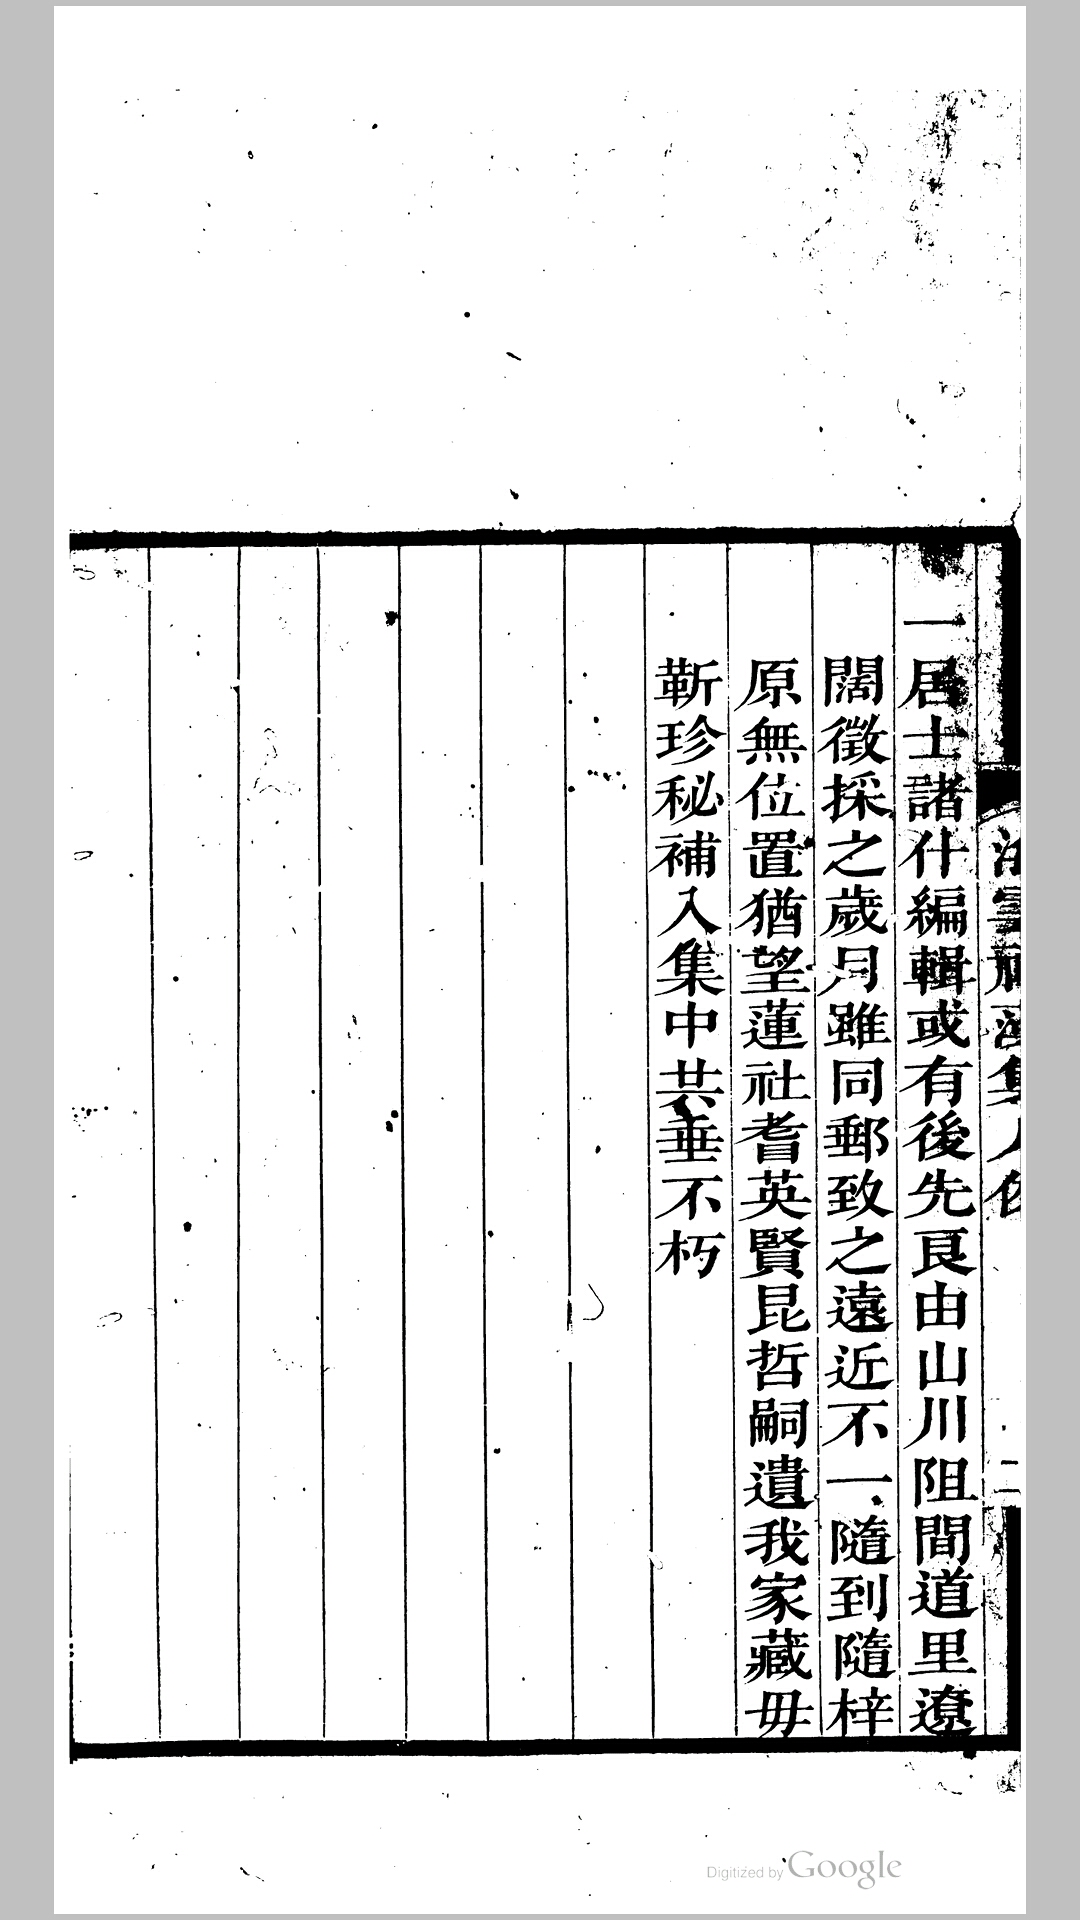 一居士諸什編輯或有後先良由山川阻間道里遼
闊徵採之歲月雖同郵致之遠近不一隨到隨梓
原無位置猶望蓮社耆英賢昆哲嗣遺我家藏毋
靳珍秘補入集中共垂不朽
二
Digitized by Google